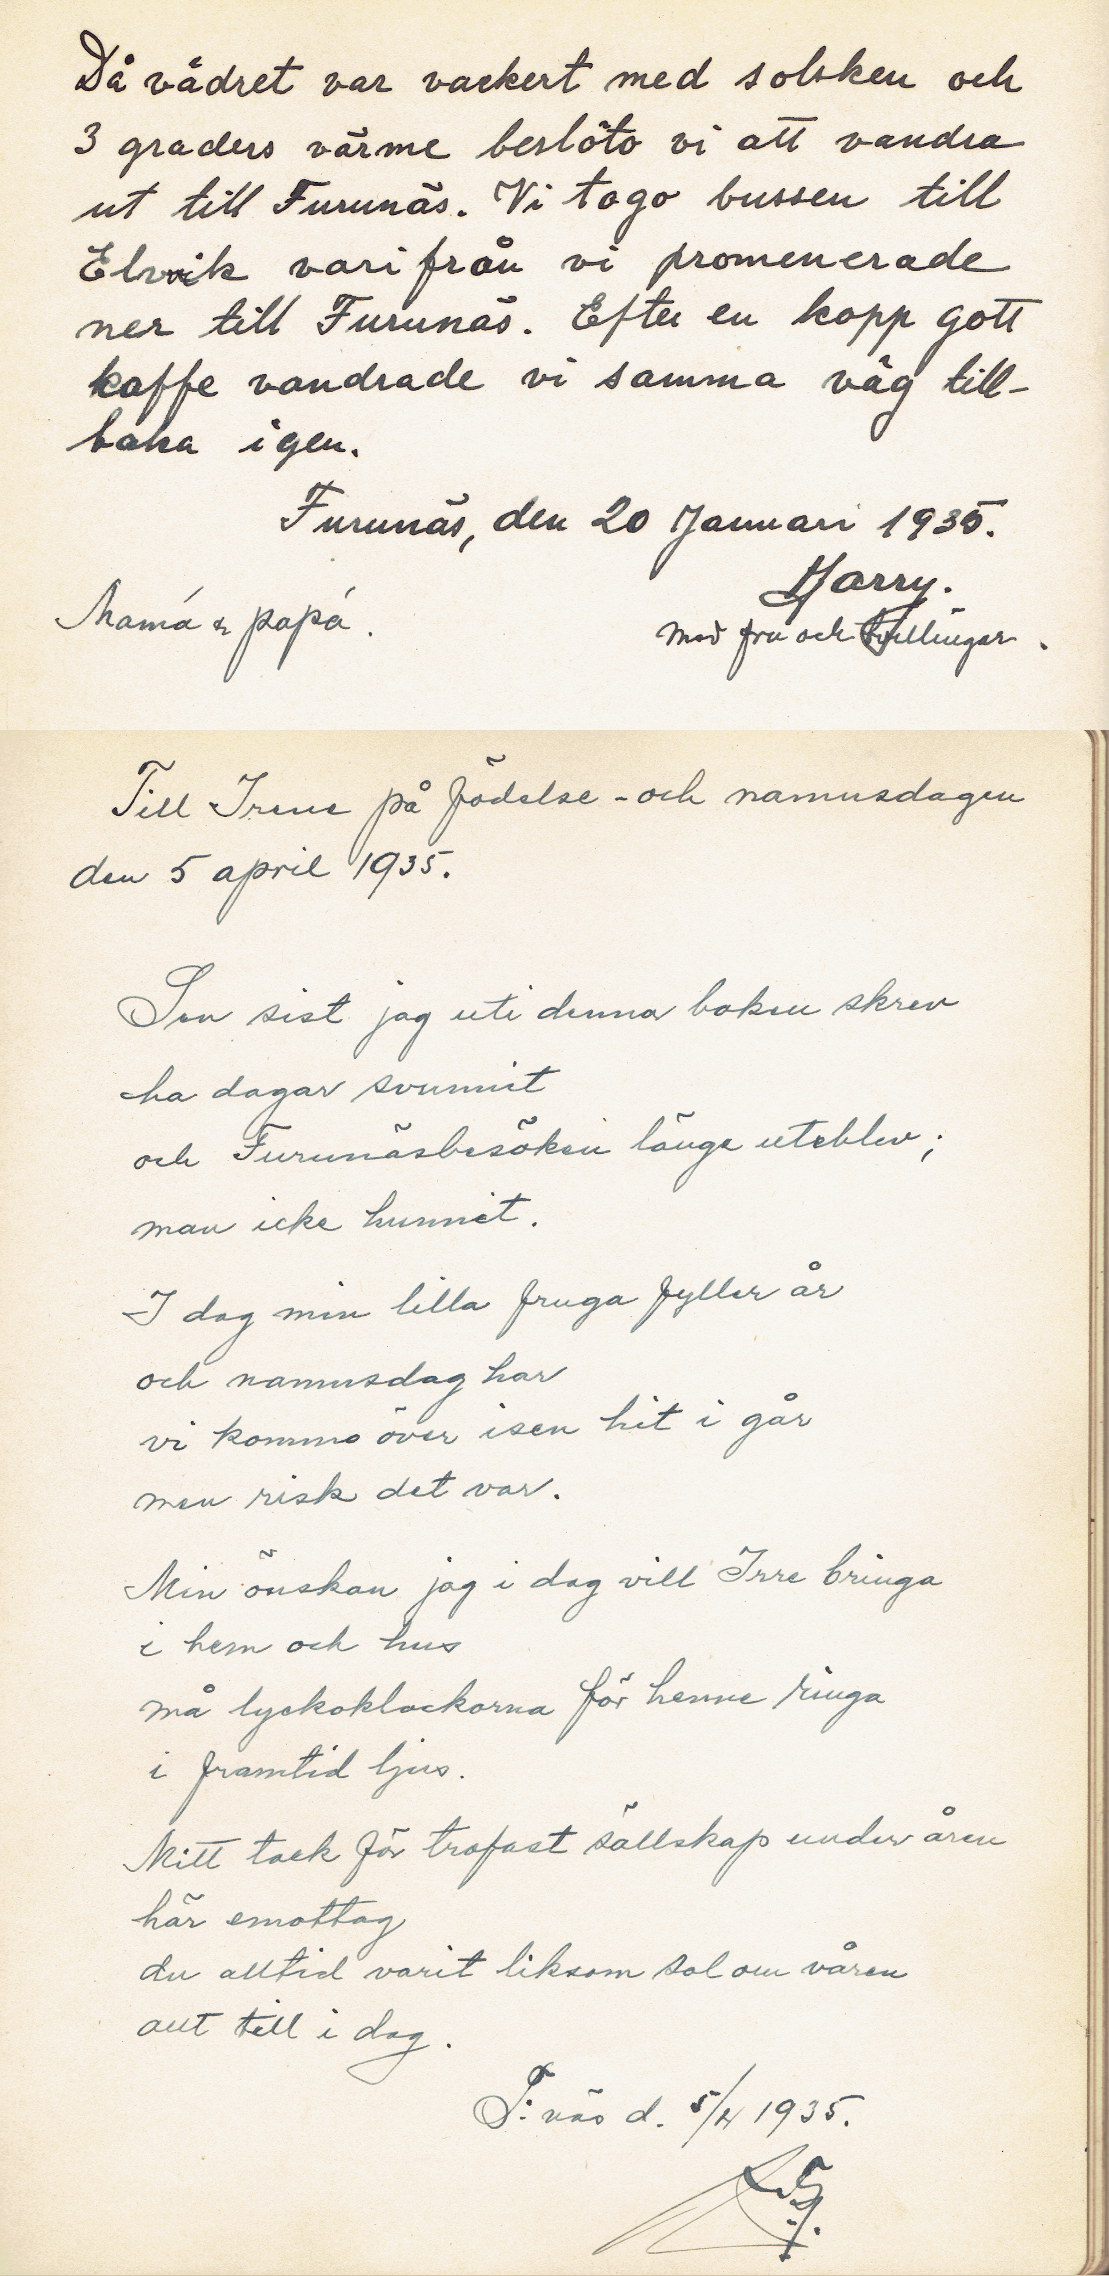 Då vädret var vackert med solsken och
3 graders värme beslöto vi att vandra
ut till Furunäs. Vi togo bussen till
Elvik varifrån vi promenerade
ner till Furunäs. Efter en kopp gott
kaffe vandrade vi samma väg till-
baka igen.
Furunäs, den 20 Januari 1935.
Harry.
Mamá & papá.
med fru och tvillingar.
Till Irene på födelse- och namnsdagen
den 5 april 1935.
Sen sist jag uti denna boken skrev
ha dagar svunnit
och Furunäsbesöken länge uteblev;
man icke hunnit.
I dag min lilla fruga fyller år
och namnsdag har
vi kommo över isen hit i går
men risk det var.
Min önskan jag i dag vill Irre bringa
i hem och hus
må lyckoklockorna för henne ringa
i framtid ljus.
Mitt tack för trofast sällskap under åren
här emottag
du alltid varit liksom sol om våren
allt till i dag.
F:näs d. 5/4 1935.